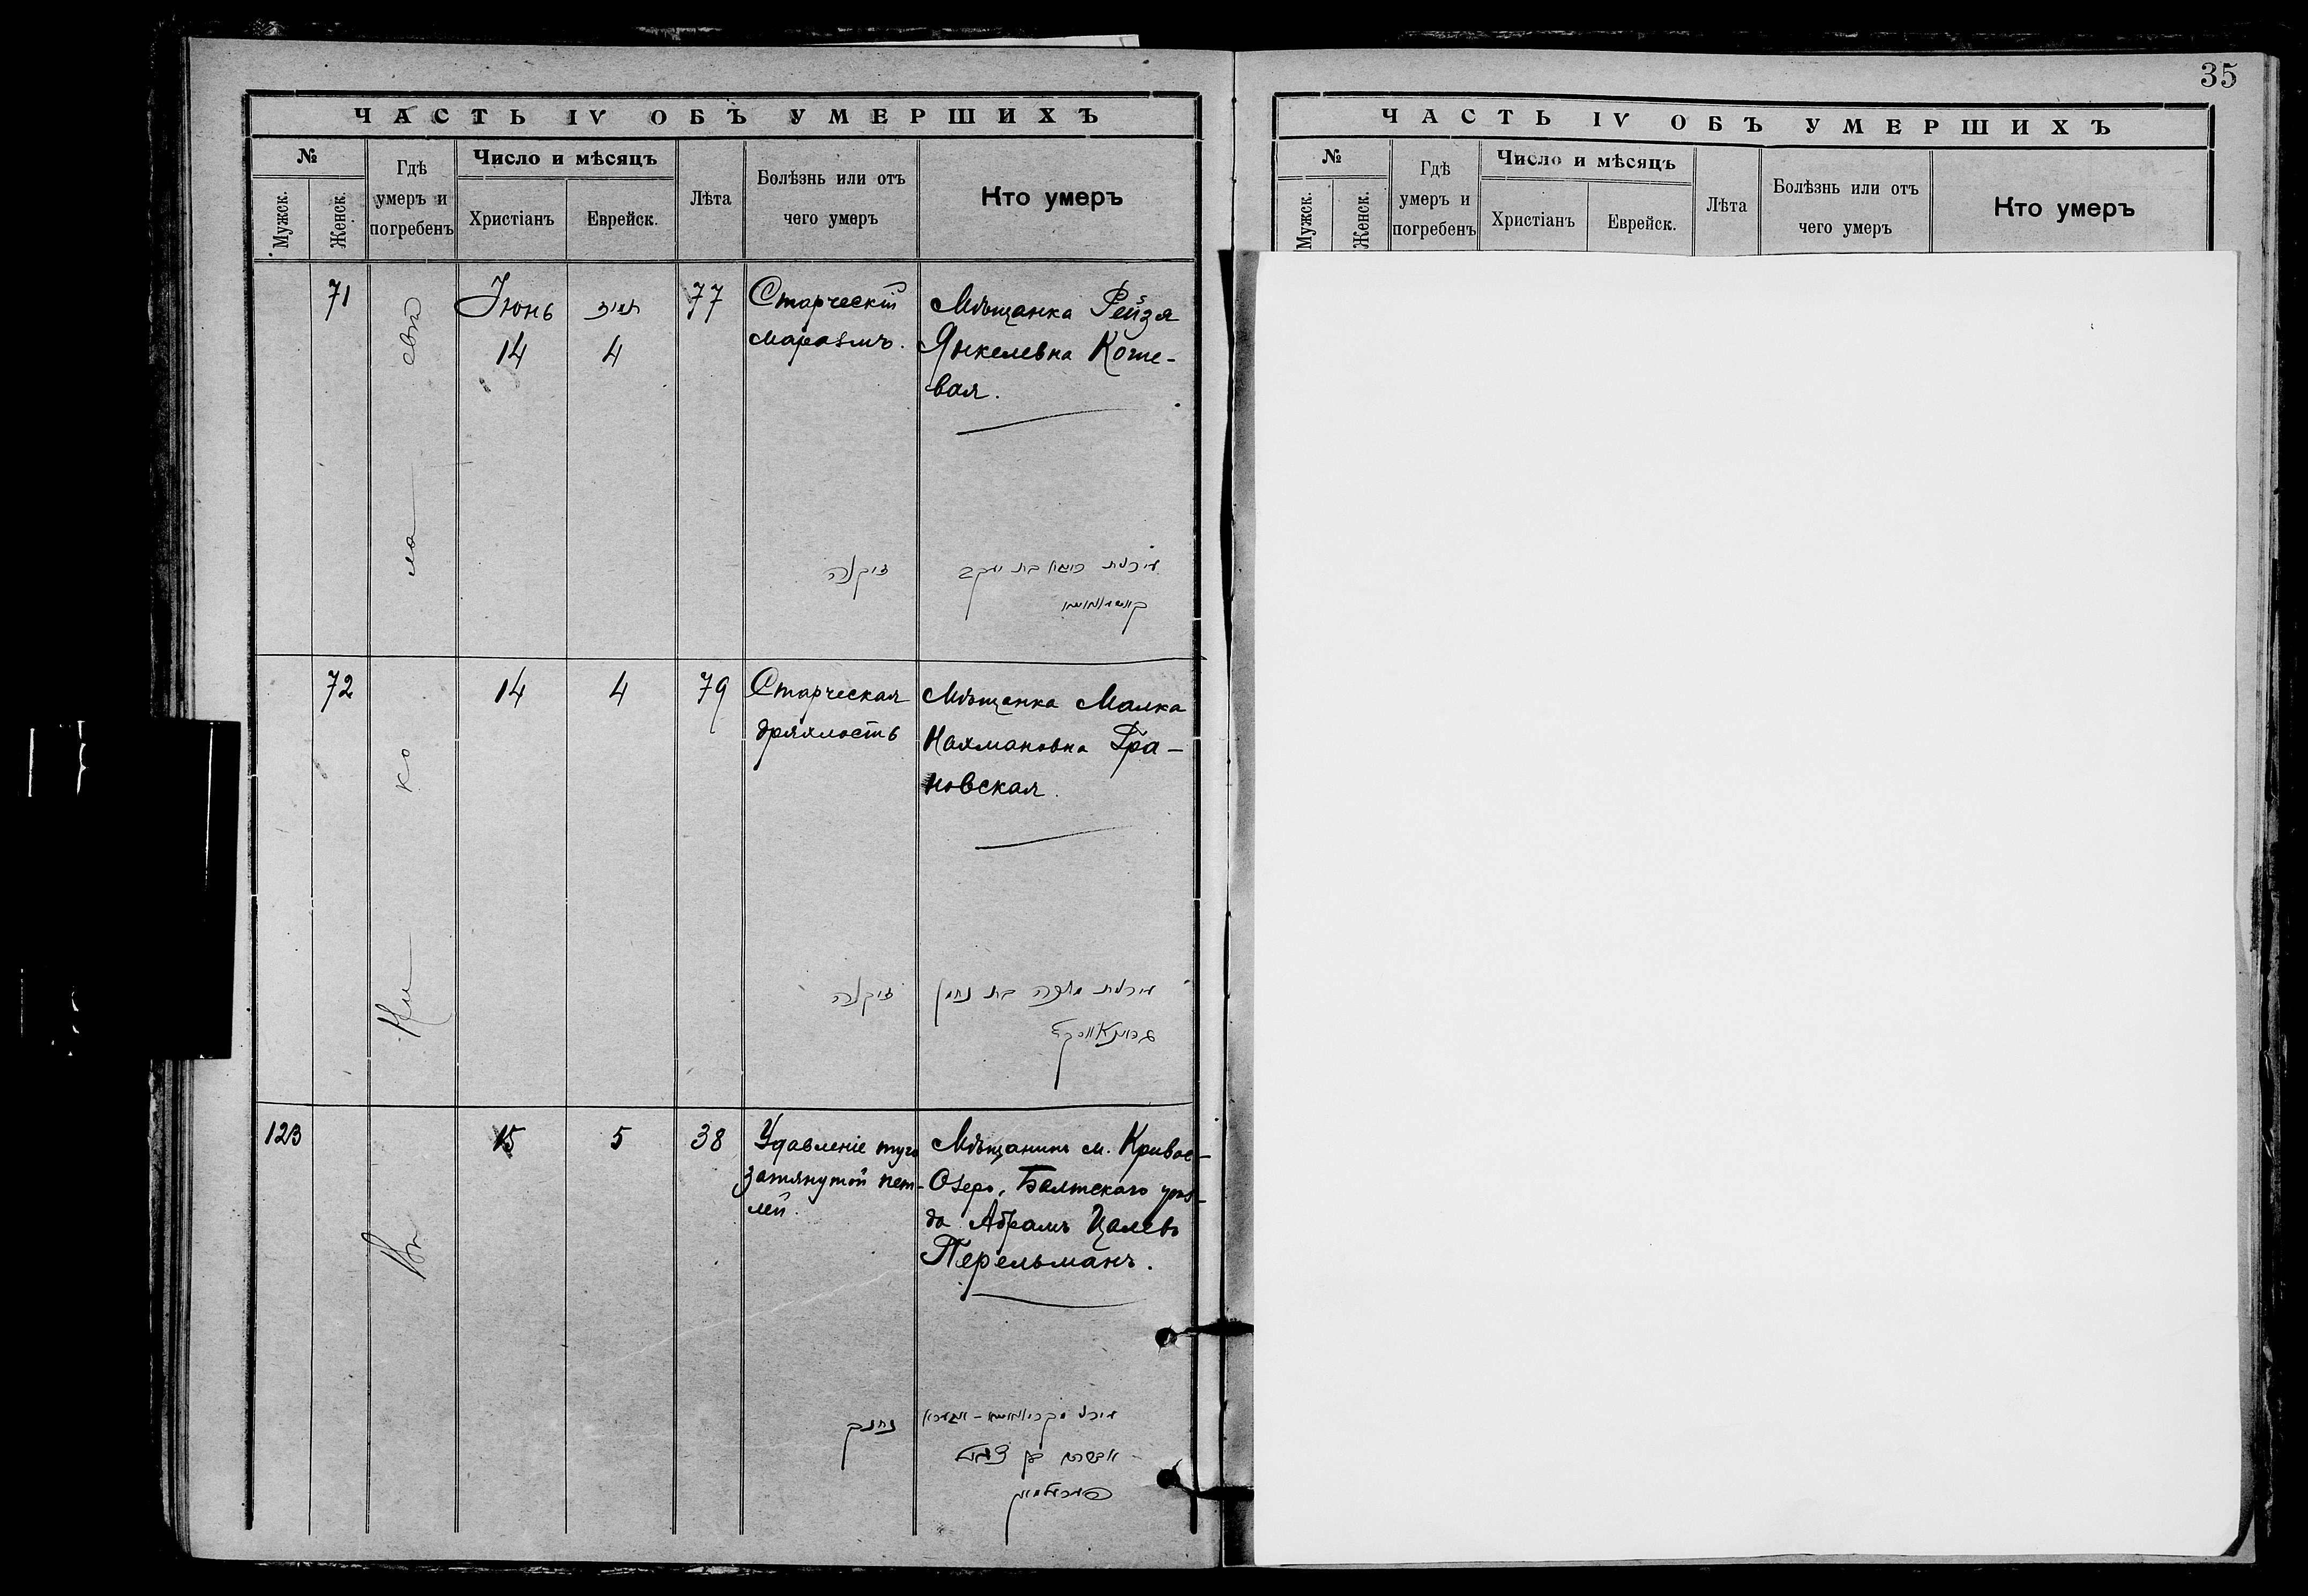 35
ЧАСТЬ IV ОБЪ УМЕРШИХЪ
№
Мужск.
Женск.
Гдѣ
умеръ и
погребенъ
Число и мѣсяцъ
Христіанъ
Еврейск.
Лѣта
Болѣзнь или отъ
чего умеръ
Кто умеръ
71
Іюнь
14
4
77
Старческій
маразмъ.
Мѣщанка Рейзя
Янкелевна Коше-
вая.
זיקנה
72
14
4
79
Старческая
дряхлость
Мѣщанка Малка
Нахмановна Гра-
новская.
זיקנה
עירנית מלכה בת נחמן
123
15
5
38
Удавленіе туго
затянутой пет-
лей.
Мѣщанинъ м. Кривое-
Озеро, Балтскаго уѣз-
да Абрамъ Цалевъ
Перельманъ.
נחנק
פערעלמאן
Ни ко ла евъ
ЧАСТЬ IV ОБЪ УМЕРШИХЪ
№
Мужск.
Женск.
Гдѣ
умеръ и
погребенъ
Число и мѣсяцъ
Христіанъ
Еврейск.
Лѣта
Болѣзнь или отъ
чего умеръ
Кто умеръ